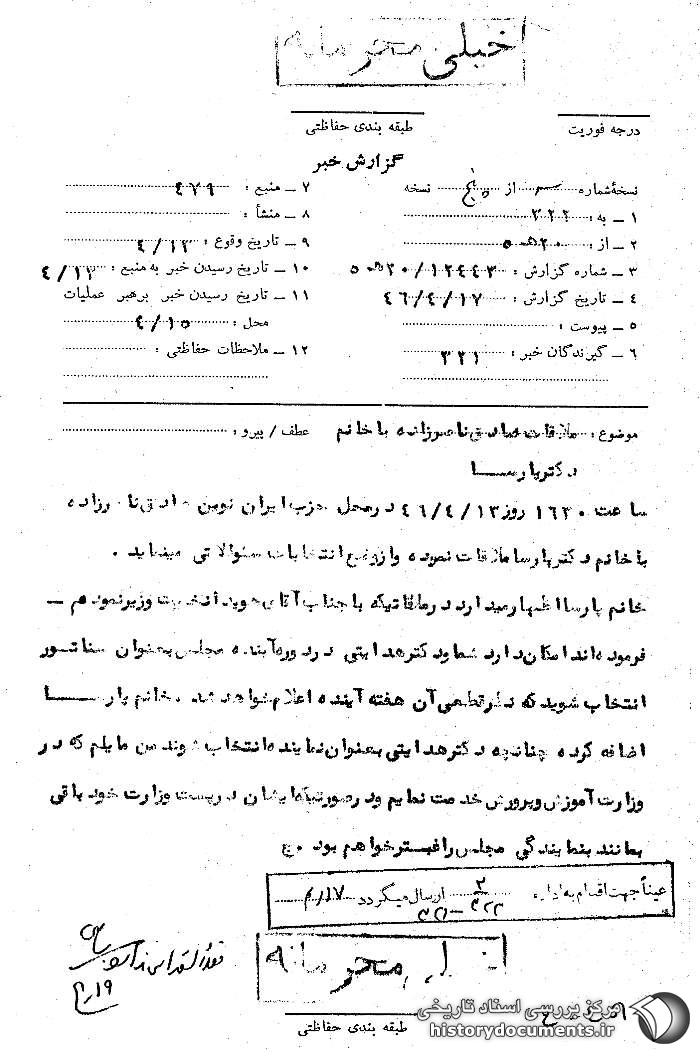 خیلی محرمانه
درجه فوریت
طبقه بندی حفاظتی
گزارش خبر
نسخهٔ شماره از پنج نسخه
۱ ـ به : ۳۲۲
۲ ـ از : ۲۰ﻫ۵
۳ ـ شماره گزارش : ۲۰/۱۲۴۴۳ﻫ۵
۴ ـ تاریخ گزارش : ۴۶/۴/۱۷
۵ ـ پیوست :
۶ ـ گیرندگان خبر : ۳۲۱
۷ ـ منبع : ۴۷۹
۸ ـ منشأ :
۹ ـ تاریخ وقوع : ۴/۱۳
۱۰ ـ تاریخ رسیدن خبر به منبع : ۴/۱۳
۱۱ ـ تاریخ رسیدن خبر برهبر عملیات
محل : ۴/۱۵
۱۲ ـ ملاحظات حفاظتی :
موضوع : ملاقات صادق ناصرزاده با خانم عطف / پیرو :
دکتر پارسا
ساعت ۱۶۳۰ روز ۴۶/۴/۱۳ در محل حزب ایران نوین صادق ناصرزاده
با خانم دکتر پارسا ملاقات نموده و از وضع انتخابات سئوالاتی مینماید .
خانم پارسا اظهار میدارد در ملاقاتیکه با جناب آقای هویدا نخست وزیر نمودهام ـ
فرموده‌اند امکان دارد شما و دکتر هدایتی در دوره آینده مجلس بعنوان سناتور
انتخاب شوید که نظر قطعی آن هفته آینده اعلام خواهد شد . خانم پارسا
اضافه کرده چنانچه دکتر هدایتی بعنوان نماینده انتخاب شوند من مایلم که در
وزارت آموزش و پرورش خدمت نمایم و در صورتیکه ایشان در پست وزارت خود باقی
بمانند بنمایندگی مجلس راغبتر خواهم بود . ع
عیناً جهت اقدام به اداره ارسال میگردد ۴/۱۷
۴/۱۹
خیلی محرمانه
طبقه بندی حفاظتی
مرکز بررسی اسناد تاریخی
historydocuments.ir